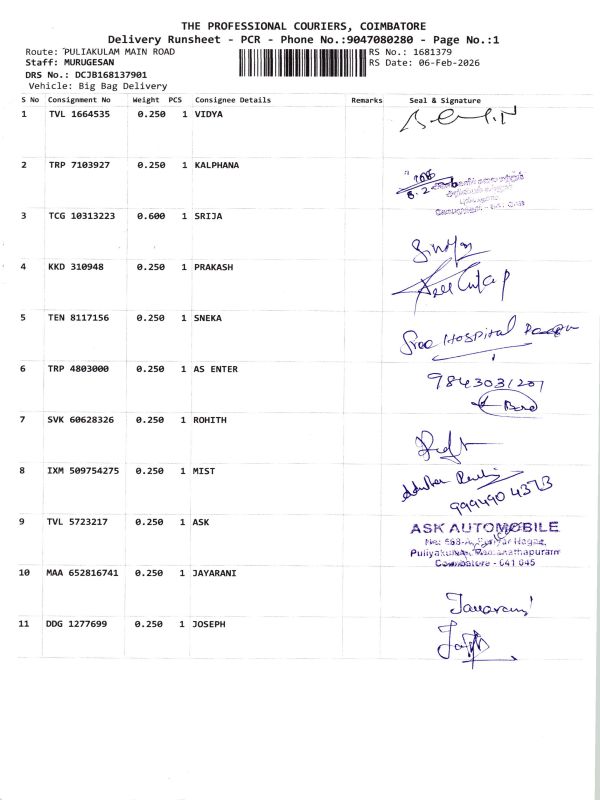 THE PROFESSIONAL COURIERS, COIMBATORE
Delivery Runsheet - PCR - Phone No.:9047080280 - Page No.:1
Route: PULIAKULAM MAIN ROAD RS No.: 1681379
Staff: MURUGESAN RS Date: 06-Feb-2026
DRS No.: DCJB168137901
Vehicle: Big Bag Delivery
S No Consignment No Weight PCS Consignee Details Remarks Seal & Signature
1 TVL 1664535 0.250 1 VIDYA
2 TRP 7103927 0.250 1 KALPHANA
3 TCG 10313223 0.600 1 SRIJA
4 KKD 310948 0.250 1 PRAKASH
5 TEN 8117156 0.250 1 SNEKA
Sree Hospital
6 TRP 4803000 0.250 1 AS ENTER
9843031201
7 SVK 60628326 0.250 1 ROHITH
8 IXM 509754275 0.250 1 MIST
9994904373
9 TVL 5723217 0.250 1 ASK
ASK AUTOMOBILE
Puliyakulam, Ramanathapuram
Coimbatore - 641 045
10 MAA 652816741 0.250 1 JAYARANI
Jayarani
11 DDG 1277699 0.250 1 JOSEPH